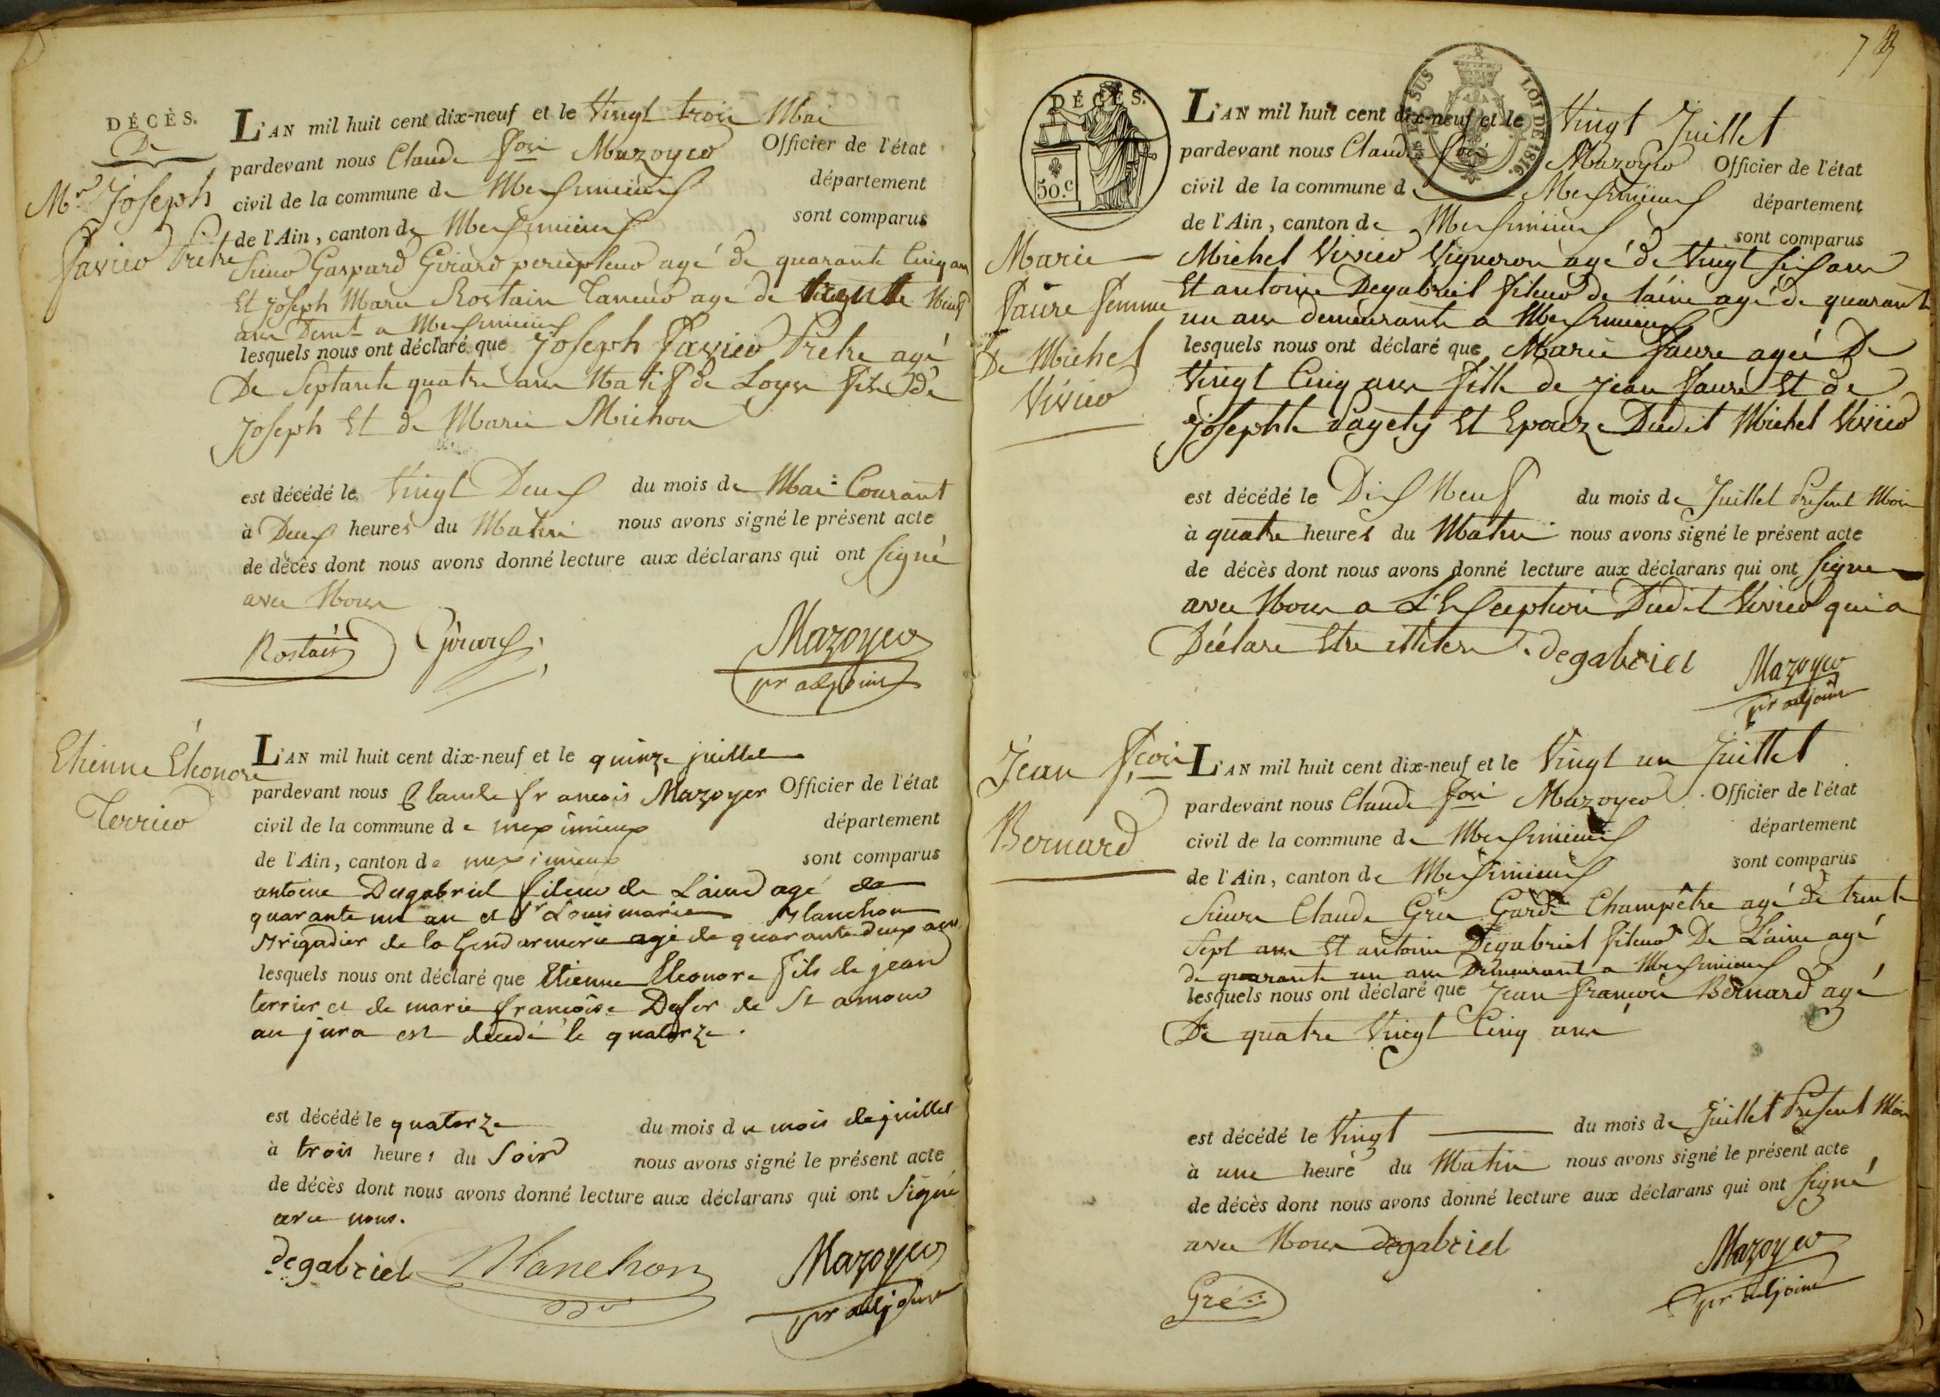 DÉCÈS.
De
Mr Joseph
Favier Prêtre
L'AN mil huit cent dix-neuf et le Vingt trois Mai
pardevant nous Claude fois Mazoyer Officier de l'état
civil de la commune de Meximieux département
de l'Ain, canton de Meximieux sont comparus
Sieur Gaspard Girard percepteur agé de quarante Cinq ans
Et Joseph Marie Rostain Tanneur age de trente Neuf
ans Demt a Meximieux
lesquels nous ont déclaré que Joseph Favier Pretre agé
De Septante quatre ans Natif de Loyes fils de
Joseph Et de Marie Michon
est décédé le Vingt Deux du mois de Mai Courant
à Deux heures du Matin nous avons signé le présent acte
de décès dont nous avons donné lecture aux déclarans qui ont Signé
avec Nous
Rostain Girard Mazoyer
pr adjoint
Etienne Éléonore
Terrier
L'AN mil huit cent dix-neuf et le quinze juillet
pardevant nous Claude francois Mazoyer Officier de l'état
civil de la commune de meximieux département
de l'Ain, canton de meximieux sont comparus
antoine Degabriel fileur de Laine agé de
quarante un an et Sr Louis marie Blanchon
Brigadier de la Gendarmerie agé de quarante deux ans
lesquels nous ont déclaré que Etienne Eleonore fils de jean
terrier et de marie françoise de St amour
au jura est décédé le quatorze.
est décédé le quatorze du mois du mois de juillet
à trois heures du Soir nous avons signé le présent acte
de décès dont nous avons donné lecture aux déclarans qui ont Signé
avec nous.
degabriel Blanchon Mazoyer
pr adjoint
7
DÉCÈS.
50.c
SUS
LOI DE 1816.
Marie
Faure femme
De Michel
Vivier
L'AN mil huit cent dix-neuf et le Vingt Juillet
pardevant nous Claude fois Mazoyer Officier de l'état
civil de la commune de Meximieux département
de l'Ain, canton de Meximieux sont comparus
Michel Vivier Vigneron agé de Vingt Six ans
Et antoine Degabriel fileur de laine agé de quarante
un ans demeurants a Meximieux
lesquels nous ont déclaré que Marie faure agée De
Vingt Cinq ans fille de Jean faure Et de
Josephte Et Epouze Dudit Michel Vivier
est décédé le Dix Neuf du mois de Juillet Présent Mois
à quatre heures du Matin nous avons signé le présent acte
de décès dont nous avons donné lecture aux déclarans qui ont Signé
avec Nous a L'Exception Dudit Vivier qui a
Déclare Etre illitere. degabriel Mazoyer
pr adjoint
Jean fcois
Bernard
L'AN mil huit cent dix-neuf et le Vingt un Juillet
pardevant nous Claude fois Mazoyer Officier de l'état
civil de la commune de Meximieux département
de l'Ain, canton de Meximieux sont comparus
Sieurs Claude Gré Garde Champêtre agé de trente
Sept ans Et antoine Degabriel fileur De Laine agé
de quarante un ans Demeurant a Meximieux
lesquels nous ont déclaré que Jean francois Bernard agé
De quatre Vingt Cinq ans
est décédé le Vingt du mois de Juillet Présent Mois
à une heure du Matin nous avons signé le présent acte
de décès dont nous avons donné lecture aux déclarans qui ont Signé
avec Nous degabriel Mazoyer
Gré pr adjoint